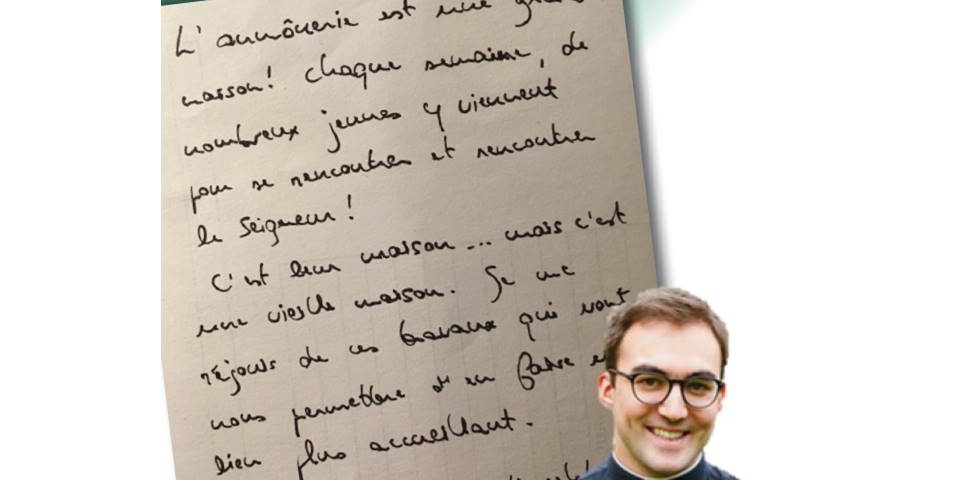 L'aumônerie est une grande
maison! Chaque semaine, de
nombreux jeunes y viennent
pour se rencontrer et rencontrer
le Seigneur!
C'est leur maison... mais c'est
une vieille maison. Je me
réjouis de ces travaux qui vont
nous permettre d'en faire
lieu plus accueillant.